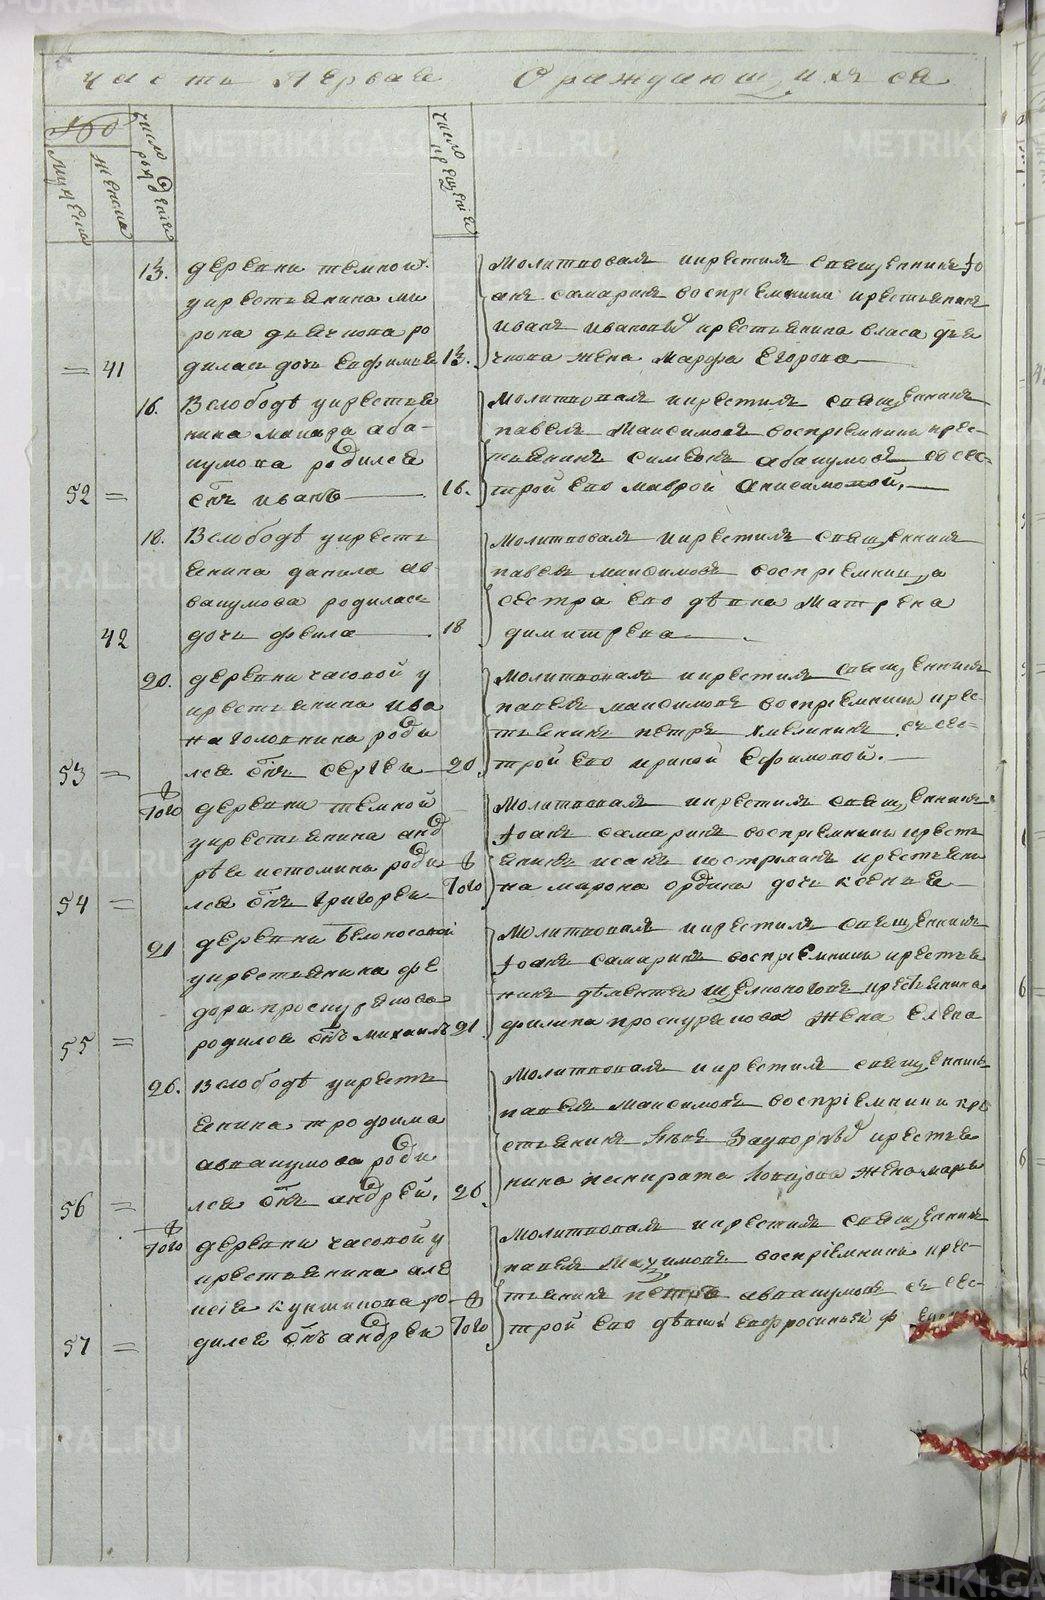 Часть первая
О раждающихся
число рождения
число крещения
мужеска
женска
13.
деревни темной
у крестьянина ми
рона дьячкова ро
41
дилась дочь евфимья
13.
Молитвовалъ и крестилъ священникъ Iо
анъ самаринъ воспрiемники крестьянинъ
иванъ ивановъ крестьянина власа дья
чкова жена Марфа Егорова
16.
В слободѣ у крестья
нина макара аба-
кумова родился
52
снъ иванъ
16.
Молитвовалъ и крестилъ священникъ
павелъ Максимовъ воспрiемники крес-
тьянинъ симеонъ абакумовъ съ сес-
трой его маврой Анисимовой,
18.
В слободѣ у кресть
янина данила ав
вакумова родилась
42
дочь фекла
18
Молитвовалъ и крестилъ священникъ
павелъ максимовъ воспрiемница
сестра его дѣвка Матрена
димитрева
20.
деревни часовой у
крестьянина ива
на головнина роди
53
лся снъ сергеи
20.
Молитвовалъ и крестилъ священникъ
павелъ максимовъ воспрiемники крес-
тьянинъ петръ хмелининъ съ сес-
трой его ириной Ефимовой.
Того
деревни темной
у крестьянина анд
рѣя истомина роди
54
лся снъ григореи
Того
Молитвовалъ и крестилъ священникъ
Iоанъ самаринъ воспрiемники кресть
янинъ исакъ костромин крестьяни
на мирона ордина дочь ксенья
21
деревни белоносовой
у крестьянина фе
дора проскурякова
55
родился снъ михаилъ
21
Молитвовалъ и крестилъ священникъ
Iоанъ самаринъ воспрiемники крестья
нинъ дѣментеи щелконоговъ крестьянина
филипа проскурякова жена елена
26.
В слободѣ у кресть
янина трофима
аввакумова роди
56
лся снъ андрей,
26
Молитвовалъ и крестилъ священникъ
павелъ максимовъ воспрiемники кре
стьянинъ крестья
нина жена марья
Того
деревни часовой у
крестьянина але
ксiя кукшинова ро
57
дился снъ андреи
Того
Молитвовалъ и крестилъ священникъ
павелъ Махимовъ воспрiемники крес-
тьянинъ петръ аввакумовъ съ сес-
трой его дѣвкой евфросиньей
METRIKI.GASO-URAL.RU